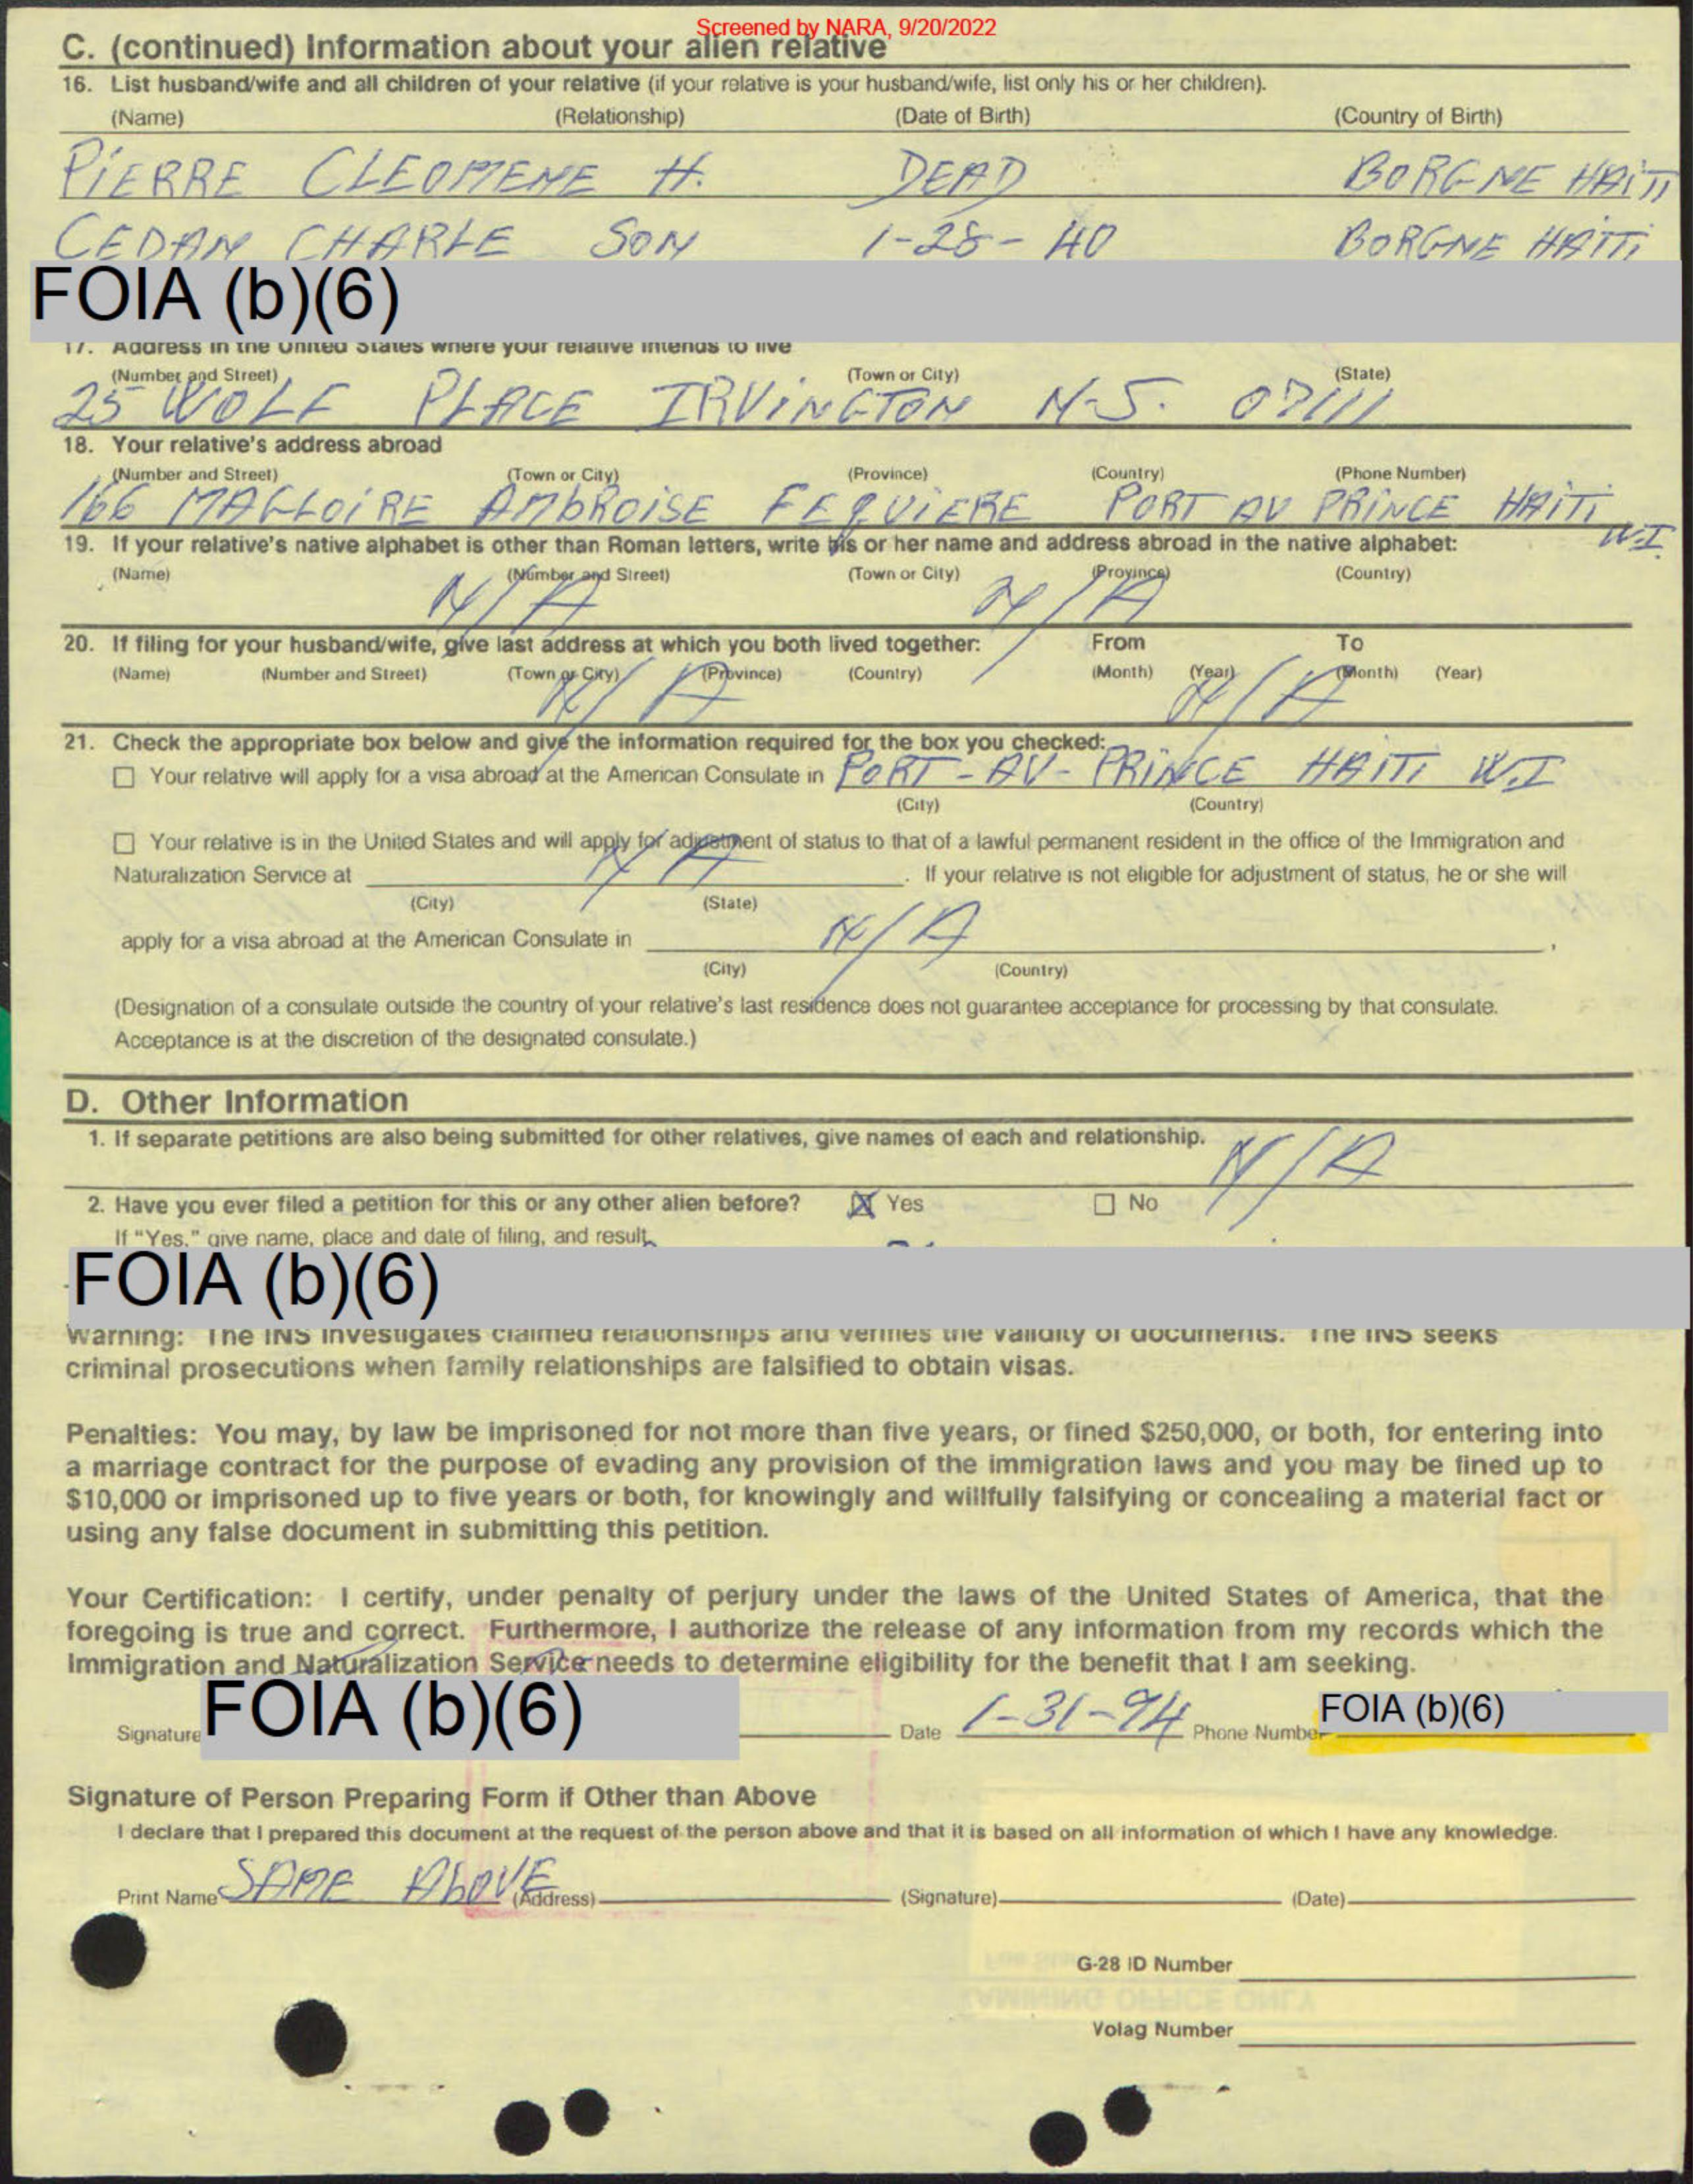 Screened by NARA, 9/20/2022
C. (continued) Information about your alien relative
16. List husband/wife and all children of your relative (if your relative is your husband/wife, list only his or her children).
(Name) (Relationship) (Date of Birth) (Country of Birth)
PIERRE CLEOMENE H. DEAD BORGNE HAITI
CEDAN CHARLE SON 1-28-40 BORGNE HAITI
FOIA (b)(6)
17. Address in the United States where your relative intends to live
(Number and Street) (Town or City) (State)
25 WOLF PLACE IRVINGTON N.J. 07111
18. Your relative's address abroad
(Number and Street) (Town or City) (Province) (Country) (Phone Number)
166 MAGLOIRE AMBROISE FEQUIERE PORT AU PRINCE HAITI W.I
19. If your relative's native alphabet is other than Roman letters, write his or her name and address abroad in the native alphabet:
(Name) (Number and Street) (Town or City) (Province) (Country)
N/A N/A
20. If filing for your husband/wife, give last address at which you both lived together: From To
(Name) (Number and Street) (Town or City) (Province) (Country) (Month) (Year) (Month) (Year)
N/A N/A
21. Check the appropriate box below and give the information required for the box you checked:
☐ Your relative will apply for a visa abroad at the American Consulate in PORT-AU-PRINCE HAITI W.I
(City) (Country)
☐ Your relative is in the United States and will apply for adjustment of status to that of a lawful permanent resident in the office of the Immigration and
Naturalization Service at N/A . If your relative is not eligible for adjustment of status, he or she will
(City) (State)
apply for a visa abroad at the American Consulate in N/A .
(City) (Country)
(Designation of a consulate outside the country of your relative's last residence does not guarantee acceptance for processing by that consulate.
Acceptance is at the discretion of the designated consulate.)
D. Other Information
1. If separate petitions are also being submitted for other relatives, give names of each and relationship. N/A
2. Have you ever filed a petition for this or any other alien before? ☒ Yes ☐ No
If "Yes," give name, place and date of filing, and result.
FOIA (b)(6)
Warning: The INS investigates claimed relationships and verifies the validity of documents. The INS seeks
criminal prosecutions when family relationships are falsified to obtain visas.
Penalties: You may, by law be imprisoned for not more than five years, or fined $250,000, or both, for entering into
a marriage contract for the purpose of evading any provision of the immigration laws and you may be fined up to
$10,000 or imprisoned up to five years or both, for knowingly and willfully falsifying or concealing a material fact or
using any false document in submitting this petition.
Your Certification: I certify, under penalty of perjury under the laws of the United States of America, that the
foregoing is true and correct. Furthermore, I authorize the release of any information from my records which the
Immigration and Naturalization Service needs to determine eligibility for the benefit that I am seeking.
Signature FOIA (b)(6) Date 1-31-94 Phone Number FOIA (b)(6)
Signature of Person Preparing Form if Other than Above
I declare that I prepared this document at the request of the person above and that it is based on all information of which I have any knowledge.
Print Name SAME ABOVE (Address) (Signature) (Date)
G-28 ID Number
Volag Number